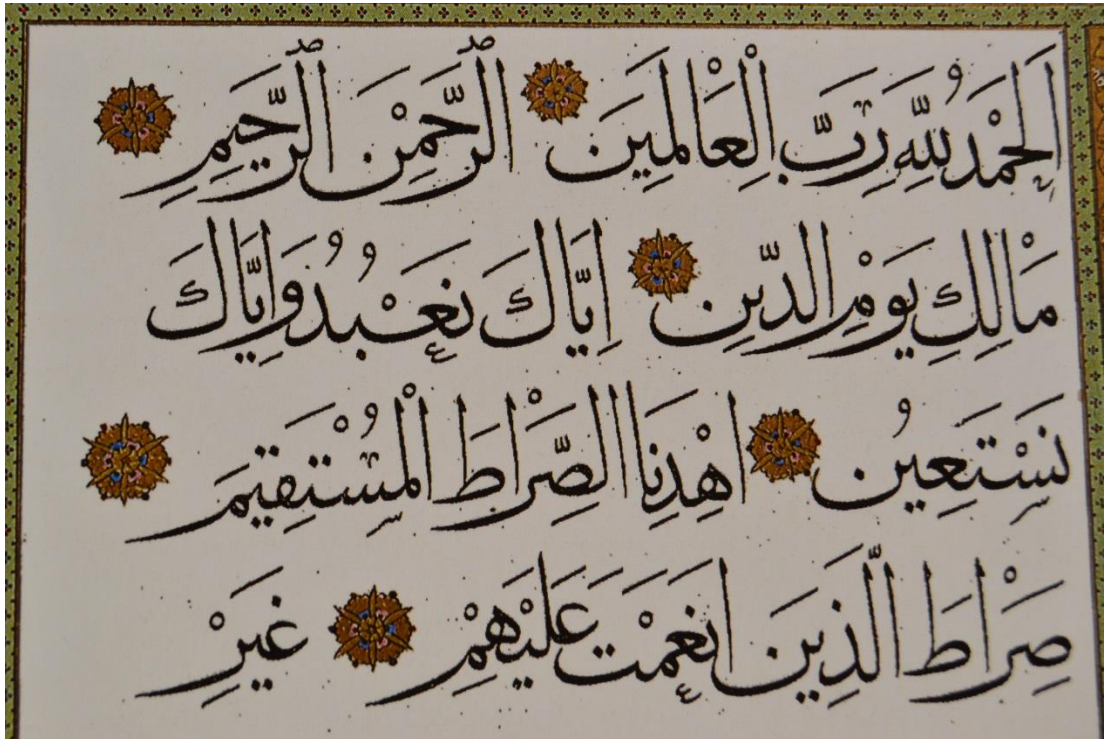 اَلْحَمْدُ لِلّٰهِ رَبِّ الْعَالَمِينَ الرَّحْمٰنِ الرَّحِيمِ
مَالِكِ يَوْمِ الدِّينِ اِيَّاكَ نَعْبُدُ وَاِيَّاكَ
نَسْتَعِينُ اهْدِنَا الصِّرَاطَ الْمُسْتَقِيمَ
صِرَاطَ الَّذِينَ اَنْعَمْتَ عَلَيْهِمْ غَيْرِ